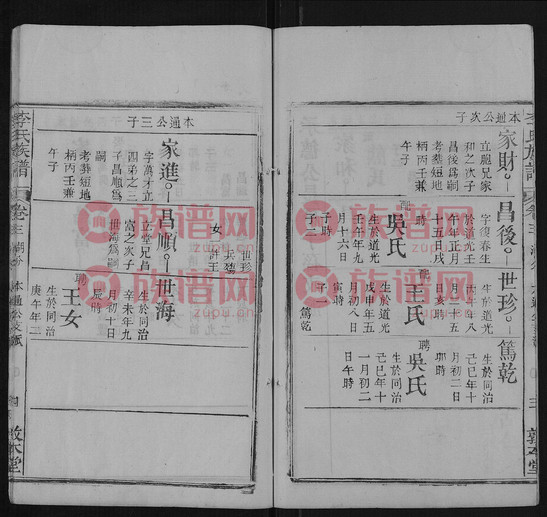 本通公次子
家財
立胞兄家
昌次子
昌後為嗣
考葬短地
柄丙壬兼
午子
昌後
字復春生
於道光壬
午年正月
十五日戌
時
配
吳氏
生於道光
壬午年九
月十六日
子時
子二
世珍
生於道光
年八
月
日亥時
聘
王氏
生於道光
戊申年五
月初八日
寅時
子一
篤乾
篤乾
生於同治
己巳年十
月初二日
卯時
聘
吳氏
生於同治
己巳年十
一月初二
日午時
敦本堂
本通公三子
家進
字萬才立
四弟之二
子昌順為
嗣
考葬短地
柄丙壬兼
午子
昌順
立堂兄昌
富之次子
世海為嗣
世珍
兵
女
計王
世海
生於同治
辛未年九
月初十日
辰時
聘
王女
生於同治
庚午年二
李氏族譜
卷三
本通公支派
四
敦本堂
族谱网
www.zupu.cn